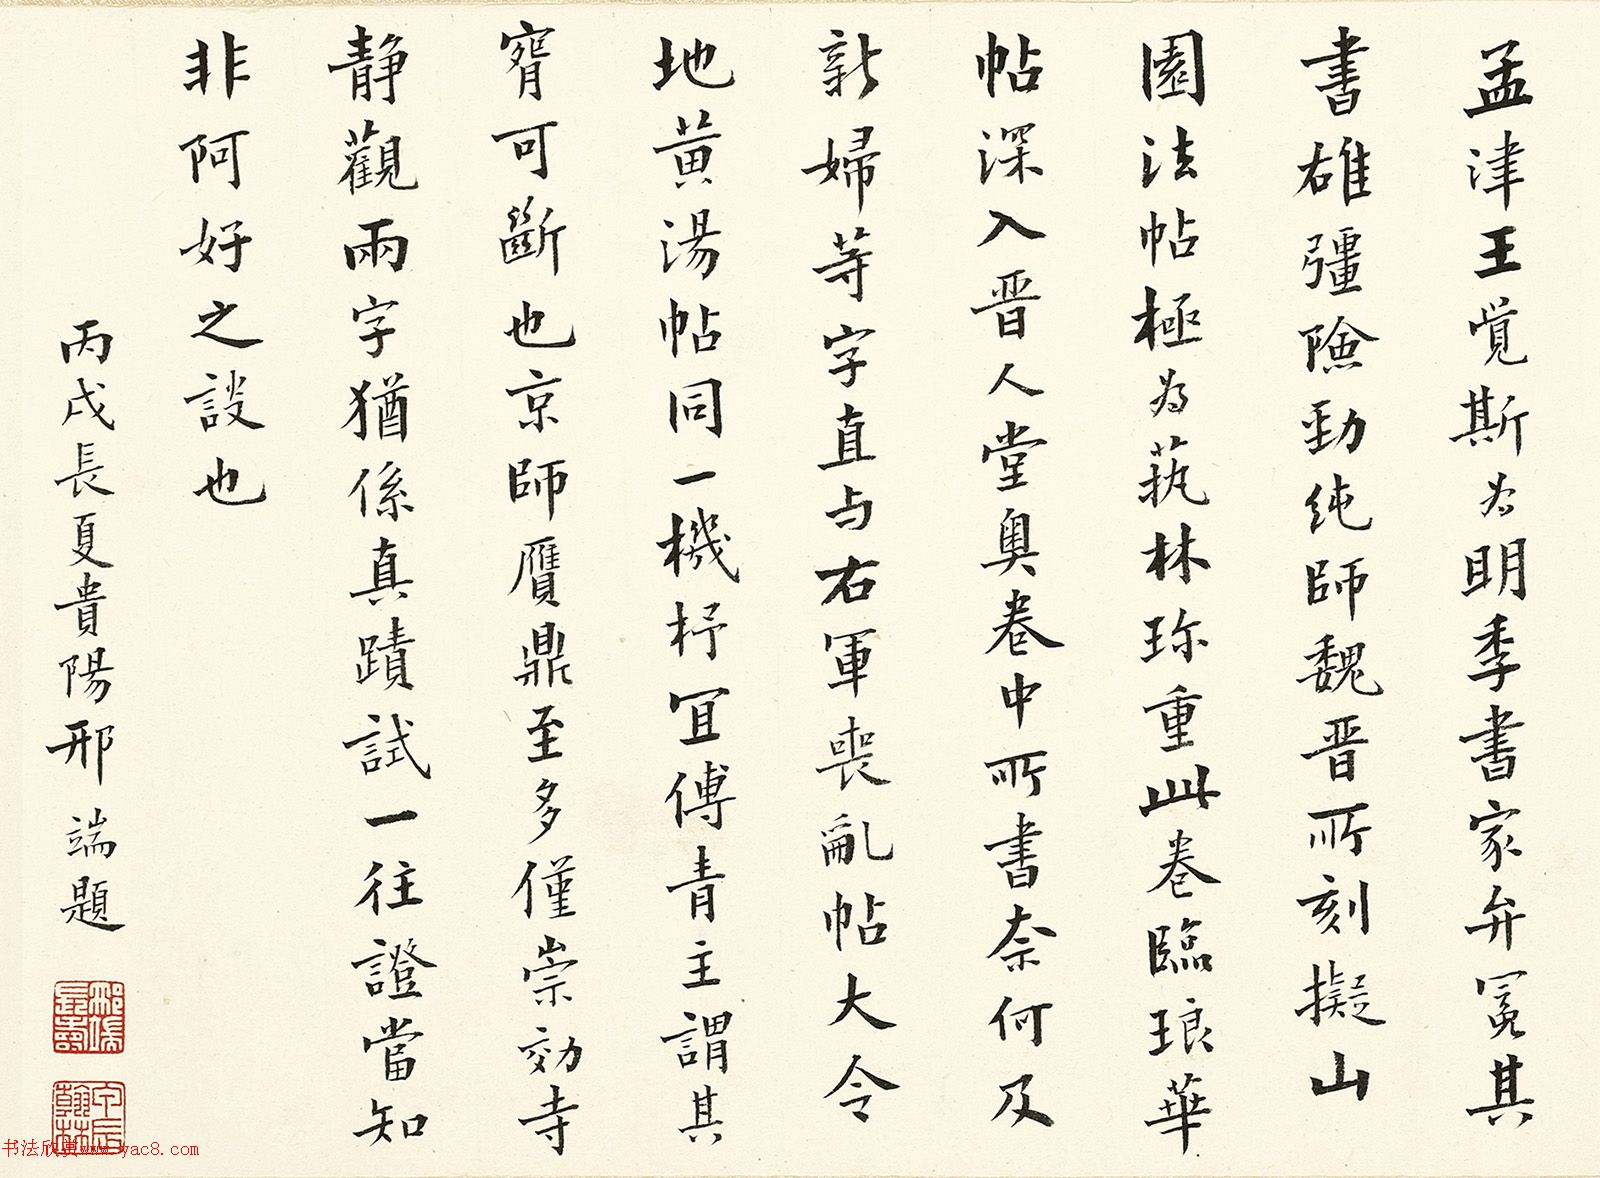 孟津王覺斯為明季書家弁冕其
書雄彊險勁純師魏晋所刻擬山
園法帖極為藝林珍重此卷臨琅華
帖深入晋人堂奧卷中所書奈何及
新婦等字直与右軍喪亂帖大令
地黄湯帖同一機杼宜傅青主謂其
可斷也京師贋鼎至多僅崇効寺
静觀兩字猶係真蹟試一往證當知
非阿好之談也
丙戌長夏貴陽邢端題
邢端長壽
翰林
书法欣赏www.yac8.com